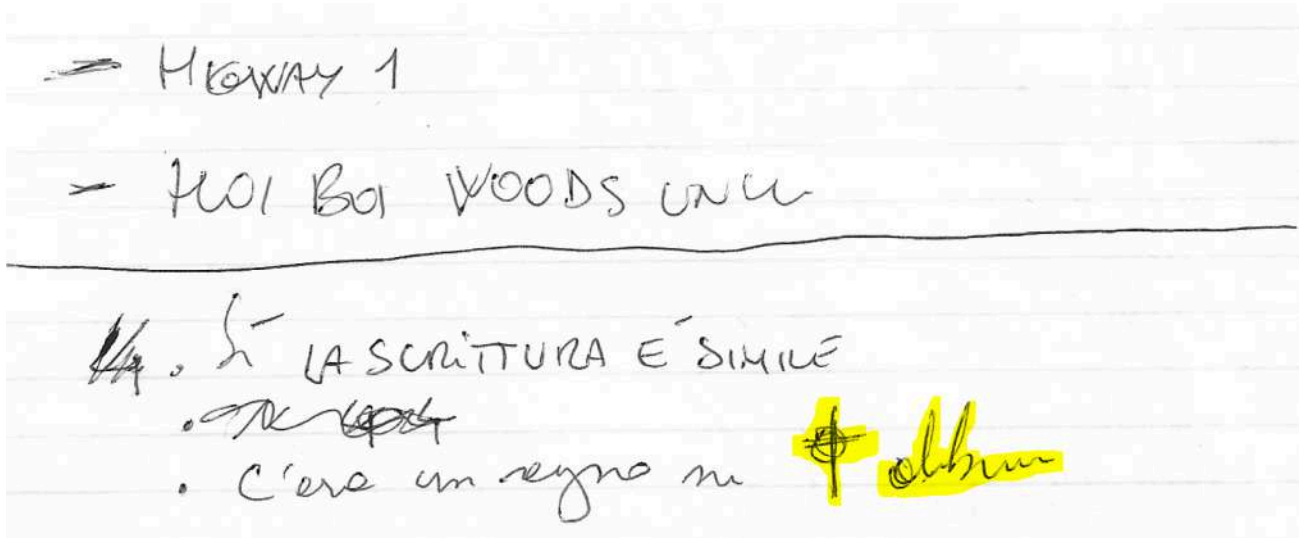 - HIGWAY 1
- BOI WOODS
. Sì LA SCRITTURA E' SIMILE
. C'era un segno su album